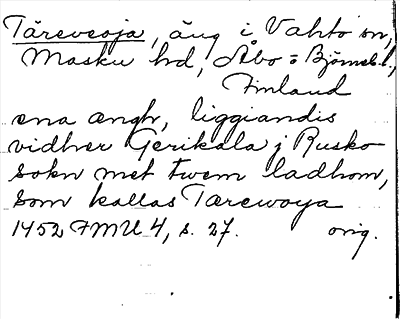 Täreveoja, äng i Vahto sn,
Masku hd, Åbo o Björneb. l,
Finland
ena ængh, liggiandis
vidher Gerikala j Rusko
sokn met twem ladhom,
som kallas Tarewoya
1452 FMU 4, s. 27. orig.